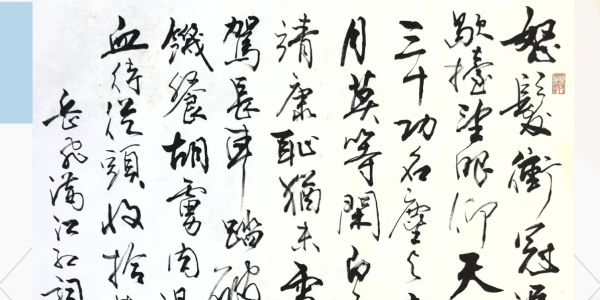 怒髮衝冠
歇擡望眼仰天
三十功名塵与
月莫等閑白
靖康恥猶未雪
駕長車踏破
饑餐胡虜肉
血待從頭收拾
岳飛滿江红詞